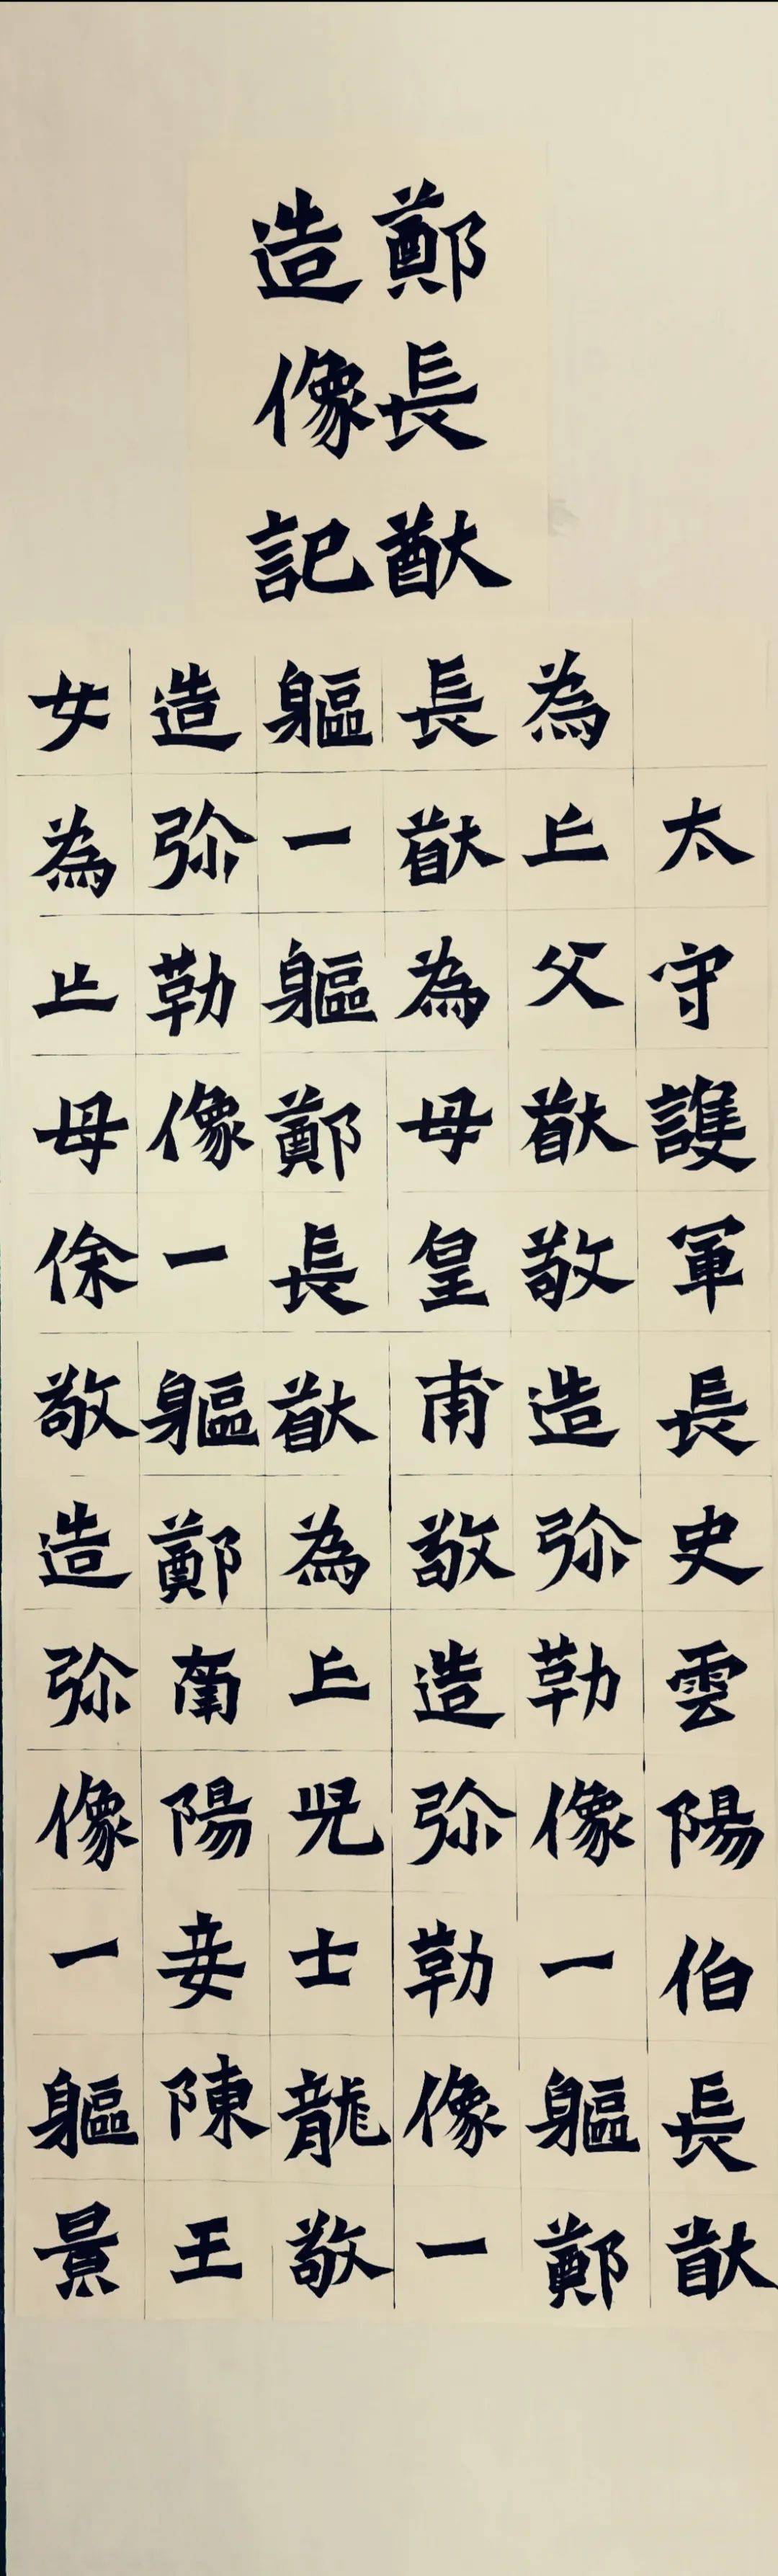 鄭長猷
造像記
太守護軍長史雲陽伯長猷
為亡父猷敬造弥勒像一軀鄭
長猷為母皇甫敬造弥勒像一
軀一軀鄭長猷為亡兒士龍敬
造弥勒像一軀鄭南陽妾陳王
女為亡母徐敬造弥像一軀景